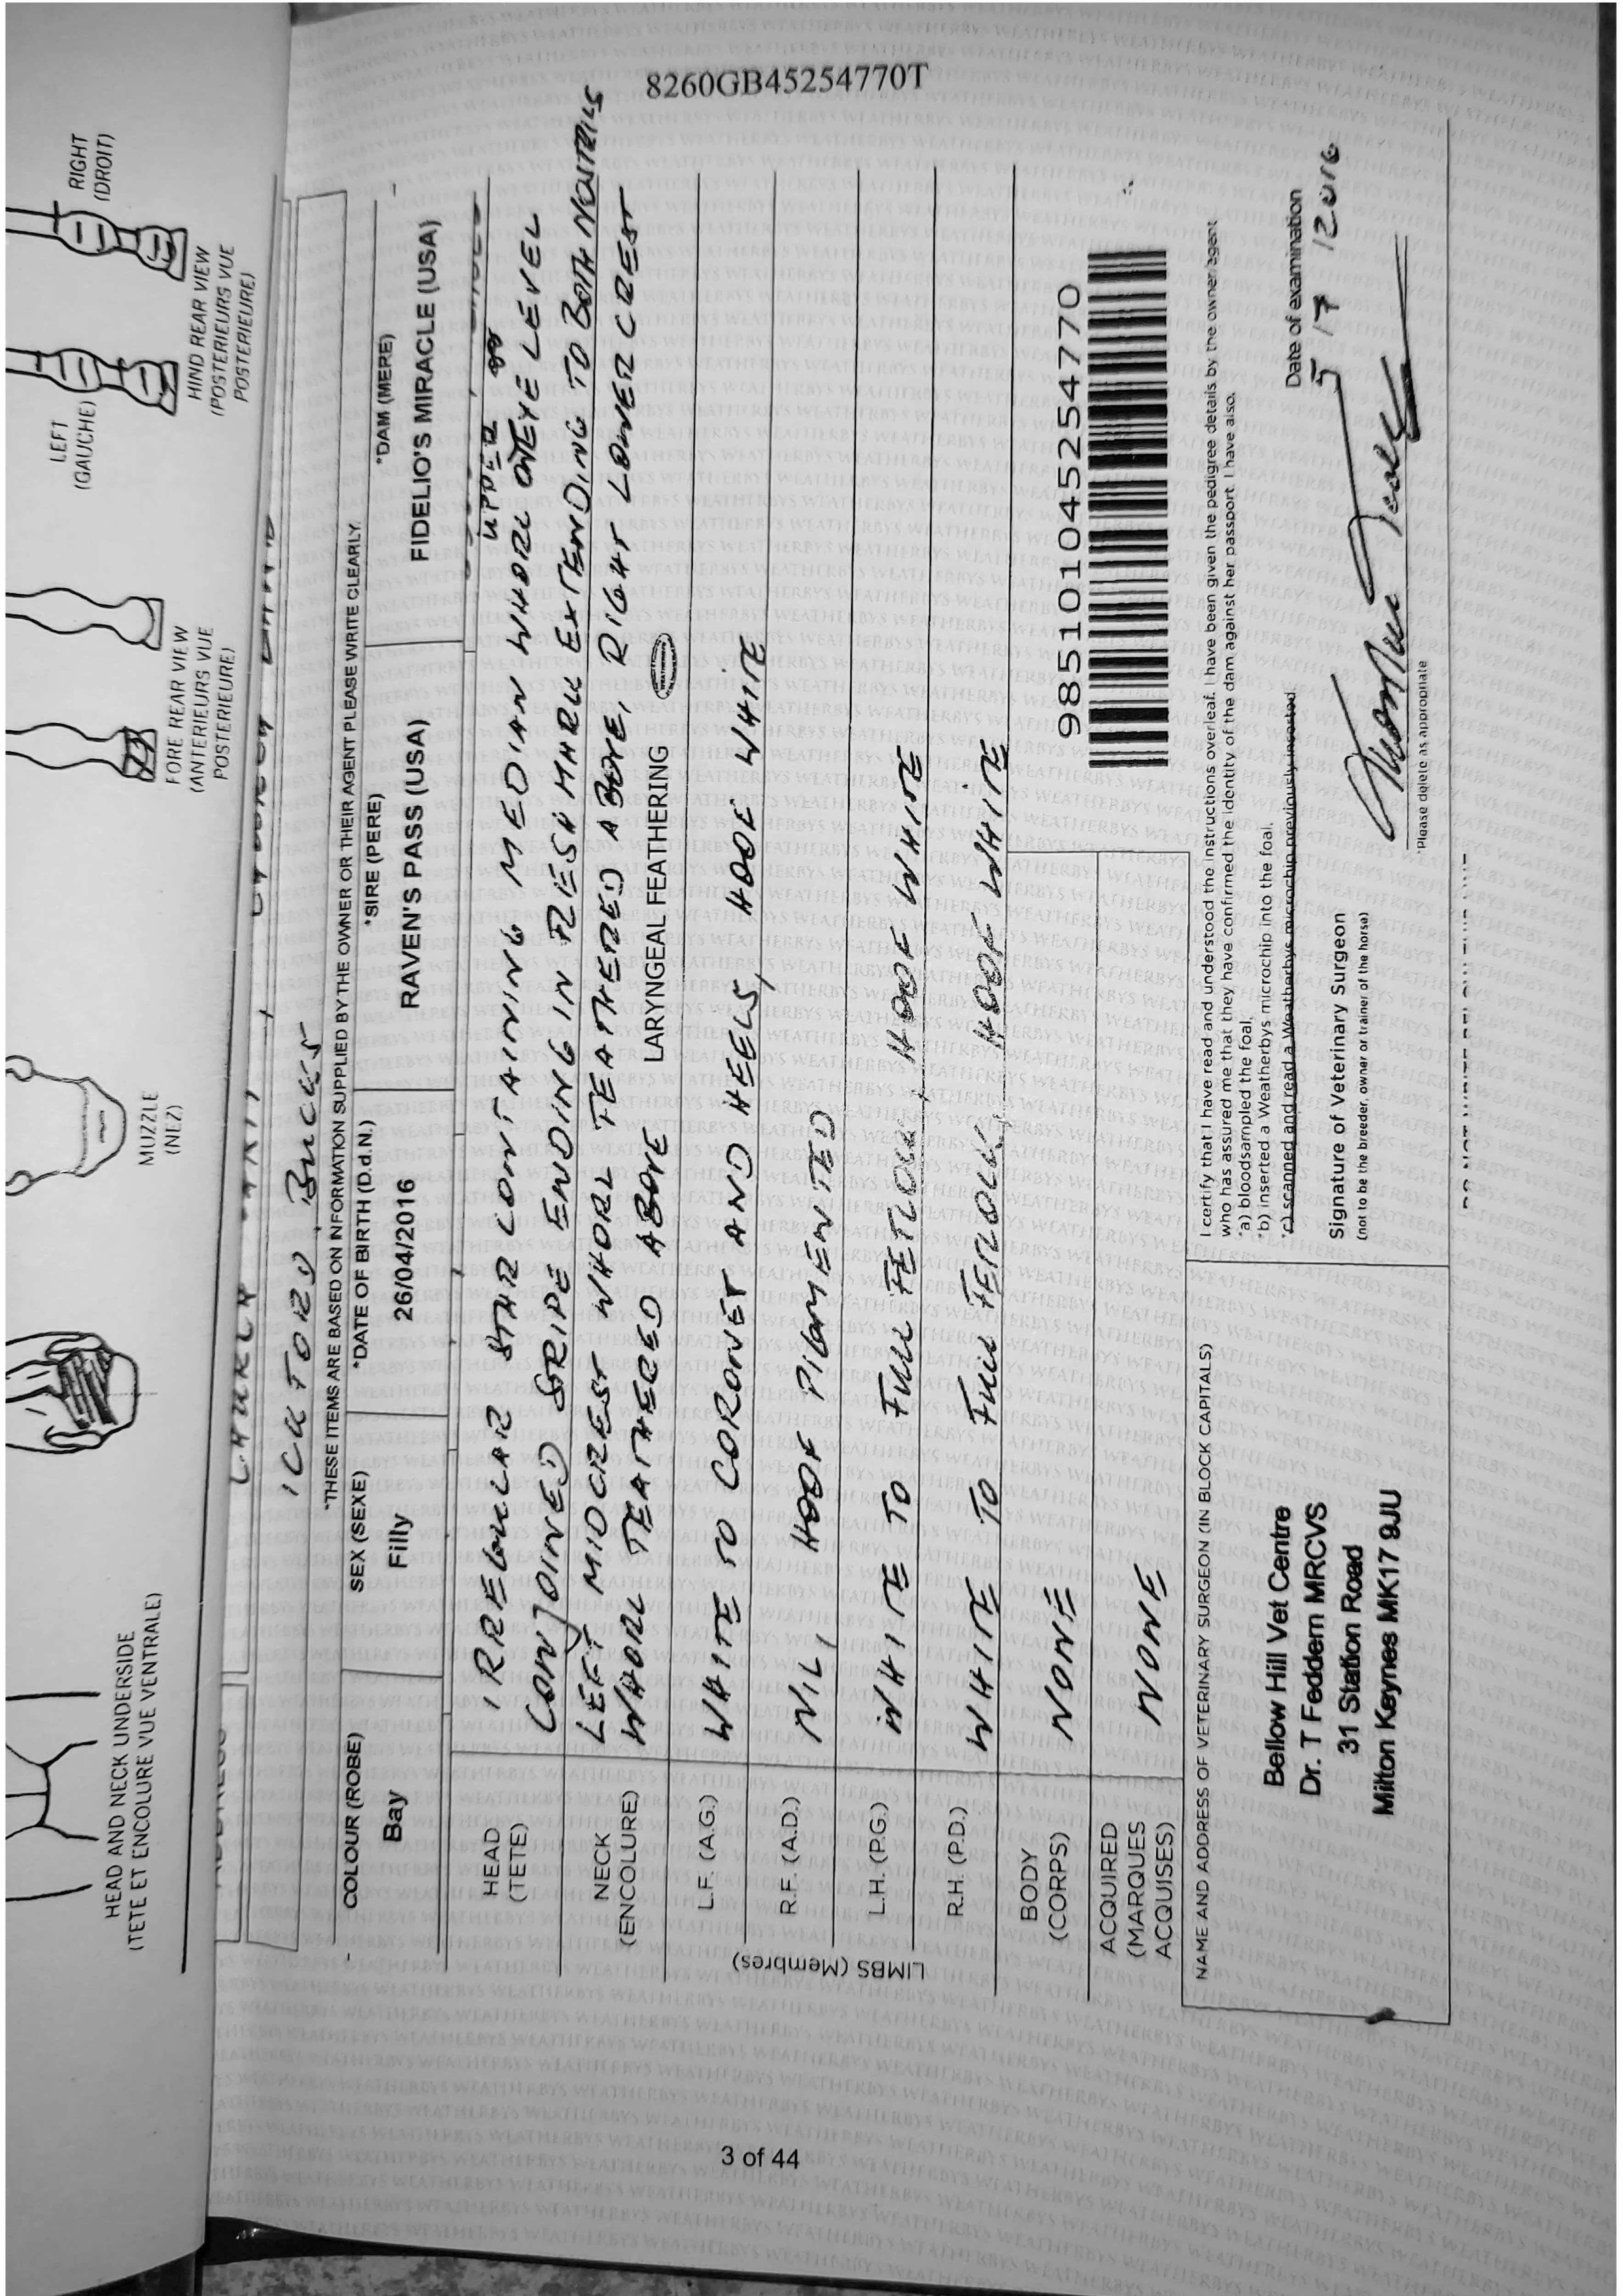 8260GB45254770T
LEFT
(GAUCHE)
RIGHT
(DROIT)
HEAD AND NECK UNDERSIDE
(TETE ET ENCOLURE VUE VENTRALE)
MUZZLE
(NEZ)
FORE REAR VIEW
(ANTERIEURS VUE
POSTERIEURE)
HIND REAR VIEW
(POSTERIEURS VUE
POSTERIEURE)
BUCKS
*THESE ITEMS ARE BASED ON INFORMATION SUPPLIED BY THE OWNER OR THEIR AGENT PLEASE WRITE CLEARLY.
COLOUR (ROBE)
Bay
SEX (SEXE)
Filly
*DATE OF BIRTH (D.d.N.)
26/04/2016
*SIRE (PERE)
RAVEN'S PASS (USA)
*DAM (MERE)
FIDELIO'S MIRACLE (USA)
HEAD
(TETE)
UPPER
IRREGULLAR STAR CONTAINING MEDIAN WHORL EYE LEVEL
CONJOINED STRIPE ENDING IN FLESH MARK EXTENDING TO BOTH NOSTRILS
NECK
(ENCOLURE)
LEFT MIDCREST WHORL FEATHERED ABOVE, RIGHT LOWER CREST
WHORL FEATHERED ABOVE LARYNGEAL FEATHERING
LIMBS (Membres)
L.F. (A.G.)
WHITE TO CORONET AND HEELS, HOOF WHITE
R.F. (A.D.)
NIL, HOOF PIGMENTED
L.H. (P.G.)
WHITE TO FULL FETLOCK, HOOF WHITE
R.H. (P.D.)
WHITE TO FULL FETLOCK, HOOF WHITE
BODY
(CORPS)
NONE
ACQUIRED
(MARQUES
ACQUISES)
NONE
985101045254770
NAME AND ADDRESS OF VETERINARY SURGEON (IN BLOCK CAPITALS)
Bellow Hill Vet Centre
Dr. T Feddern MRCVS
31 Station Road
Milton Keynes MK17 9JU
I certify that I have read and understood the instructions overleaf. I have been given the pedigree details by the owner/agent
who has assured me that they have confirmed the identity of the dam against her passport. I have also.
*a) bloodsampled the foal.
*b) inserted a Weatherbys microchip into the foal.
*c) scanned and read a Weatherbys microchip previously inserted
Signature of Veterinary Surgeon
(not to be the breeder, owner or trainer of the horse)
*Please delete as appropriate
Date of examination
3 of 44